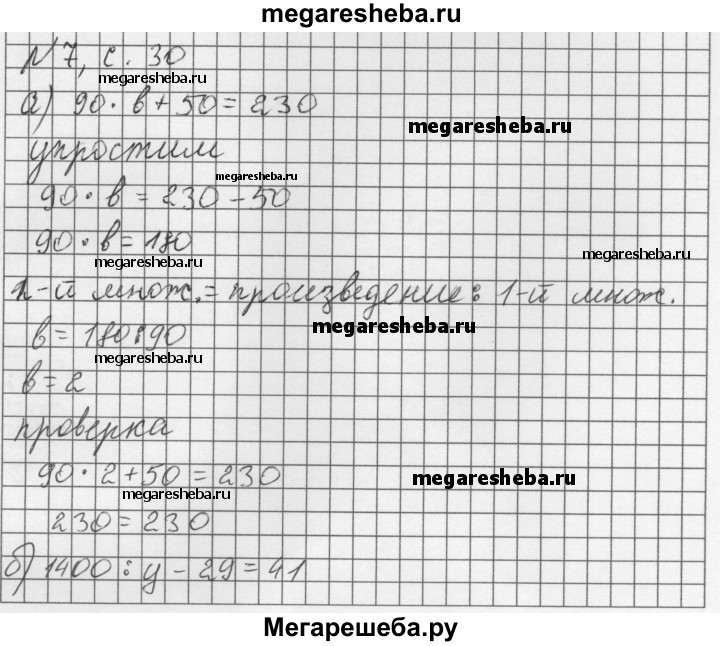 megaresheba.ru
N 7, с. 30
megaresheba.ru
а) 90 · в + 50 = 230
megaresheba.ru
упростим
megaresheba.ru
90 · в = 230 - 50
90 · в = 180
megaresheba.ru
megaresheba.ru
2-й множ. = произведение : 1-й множ.
megaresheba.ru
в = 180 : 90
megaresheba.ru
в = 2
проверка
90 · 2 + 50 = 230
megaresheba.ru
megaresheba.ru
230 = 230
б) 1400 : у - 29 = 41
Мегарешеба.ру